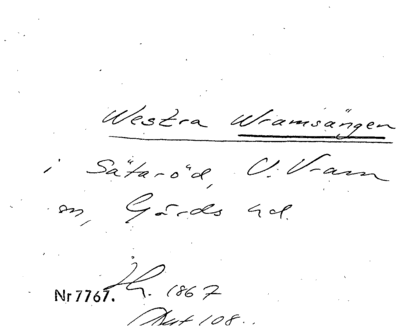 Westra Wramsängen
i Sätaröd, V. Vram
sn, Gärds hd.
Nr 7767. 1867
Akt 108..